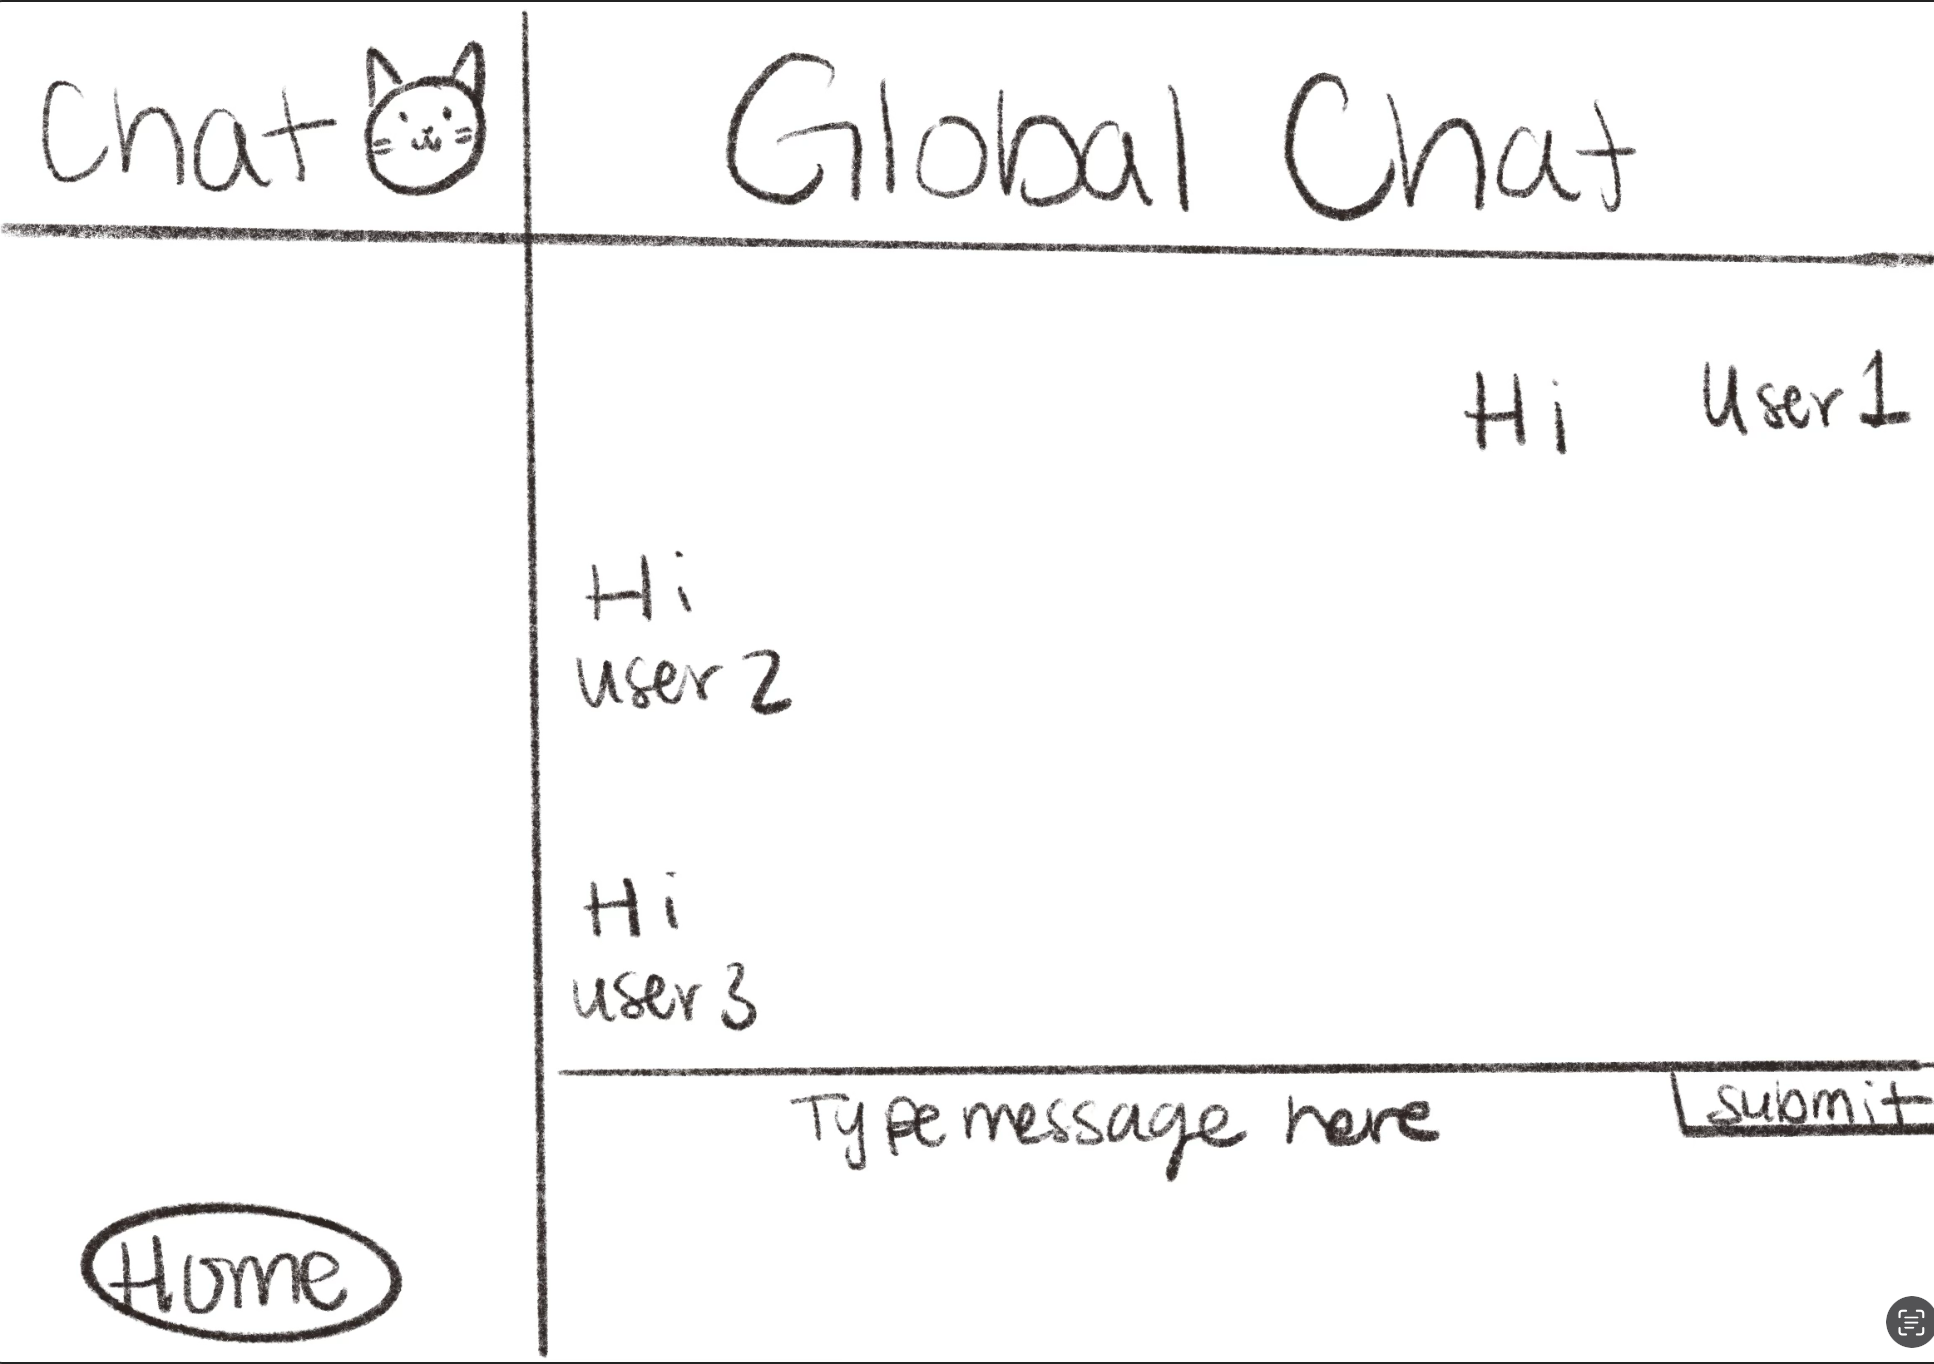 Chat
Global Chat
Hi User 1
Hi
user 2
Hi
user 3
Type message here
submit
Home